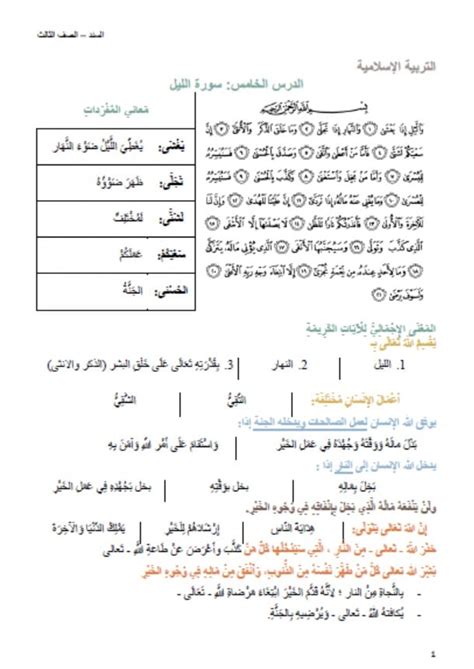 السند – الصف الثالث
التربية الإسلامية
الدرس الخامس: سورة الليل
بِسْمِ اللَّهِ الرَّحْمَٰنِ الرَّحِيمِ
وَاللَّيْلِ إِذَا يَغْشَىٰ ١ وَالنَّهَارِ إِذَا تَجَلَّىٰ ٢ وَمَا خَلَقَ الذَّكَرَ وَالْأُنثَىٰ ٣ إِنَّ
سَعْيَكُمْ لَشَتَّىٰ ٤ فَأَمَّا مَنْ أَعْطَىٰ وَاتَّقَىٰ ٥ وَصَدَّقَ بِالْحُسْنَىٰ ٦ فَسَنُيَسِّرُهُ
لِلْيُسْرَىٰ ٧ وَأَمَّا مَن بَخِلَ وَاسْتَغْنَىٰ ٨ وَكَذَّبَ بِالْحُسْنَىٰ ٩ فَسَنُيَسِّرُهُ
لِلْعُسْرَىٰ ١٠ وَمَا يُغْنِي عَنْهُ مَالُهُ إِذَا تَرَدَّىٰ ١١ إِنَّ عَلَيْنَا لَلْهُدَىٰ ١٢ وَإِنَّ لَنَا
لَلْآخِرَةَ وَالْأُولَىٰ ١٣ فَأَنذَرْتُكُمْ نَارًا تَلَظَّىٰ ١٤ لَا يَصْلَاهَا إِلَّا الْأَشْقَى ١٥
الَّذِي كَذَّبَ وَتَوَلَّىٰ ١٦ وَسَيُجَنَّبُهَا الْأَتْقَى ١٧ الَّذِي يُؤْتِي مَالَهُ يَتَزَكَّىٰ
١٨ وَمَا لِأَحَدٍ عِندَهُ مِن نِّعْمَةٍ تُجْزَىٰ ١٩ إِلَّا ابْتِغَاءَ وَجْهِ رَبِّهِ الْأَعْلَىٰ ٢٠
وَلَسَوْفَ يَرْضَىٰ ٢١
مَعاني المُفْرَدات
يَغْشى: يُغَطِّيَ اللَّيْلُ ضَوْءَ النَّهار
تَجَلّى: ظَهَرَ ضَوْؤُهُ
لَشَتّى: لَمُخْتَلِفٌ
سَعْيَكُمْ: عَمَلَكُمْ
الحُسْنى: الجَنَّةُ
المَعْنى الإِجْمالِيُّ لِلْآياتِ الكَريمَةِ
يُقْسِمُ اللهُ تَعالى بِـ
1. الليل 2. النهار 3. بِقُدْرَتِهِ تَعَالَى عَلَى خَلْقِ البشر (الذكر والانثى)
أَعْمالُ الإِنْسانِ مُخْتَلِفَة: التَّقِيُّ الشَّقِيُّ
يوفق الله الإنسان لعمل الصالحات ويدخله الجنة إذا:
بَذَلَ مالَهُ وَوَقْتَهُ وَجُهْدَهُ في عَمَلِ الخَيْرِ وَاسْتَقامَ عَلى أَمْرِ اللهِ وَآمَنَ بِهِ
يدخل الله الإنسان إلى النار إذا:
بَخِلَ بِمالِهِ بخل بوَقْتِهِ بخل بَجُهْدِهِ في عَمَلِ الخَيْرِ
وَلَنْ يَنْفَعَهُ مَالُهُ الَّذي بَخِلَ بِإِنْفاقِهِ في وُجوهِ الخَيْرِ.
إِنَّ اللهَ تَعالى يَتَوَلّى: هِدايَةَ النّاسِ إِرْشادُهُمْ لِلْخَيْرِ يَمْلِكُ الدُّنْيا وَالآخِرَةَ
حَذَّرَ اللهُ - تَعالى - مِنَ النّارِ ، الَّتي سَيَدْخُلُها كُلُّ مَنْ كَذَّبَ وَأَعْرَضَ عَنْ طاعَةِ اللهِ - تَعالى
بَشَّرَ اللهُ تَعالى كُلَّ مَنْ طَهَّرَ نَفْسَهُ مِنَ الذُّنوبِ، وَأَنْفَقَ مِنْ مالِهِ في وُجوهِ الخَيْرِ
- بِالنَّجاةِ من النار ؛ لأَنَّهُ قَدَّمَ الخَيْرَ ابْتِغاءَ مَرْضاةِ اللهِ – تَعالى –
- يُكافئَهُ الله - تعالى - وَيُرْضِيهِ بِالجَنَّةِ.
1